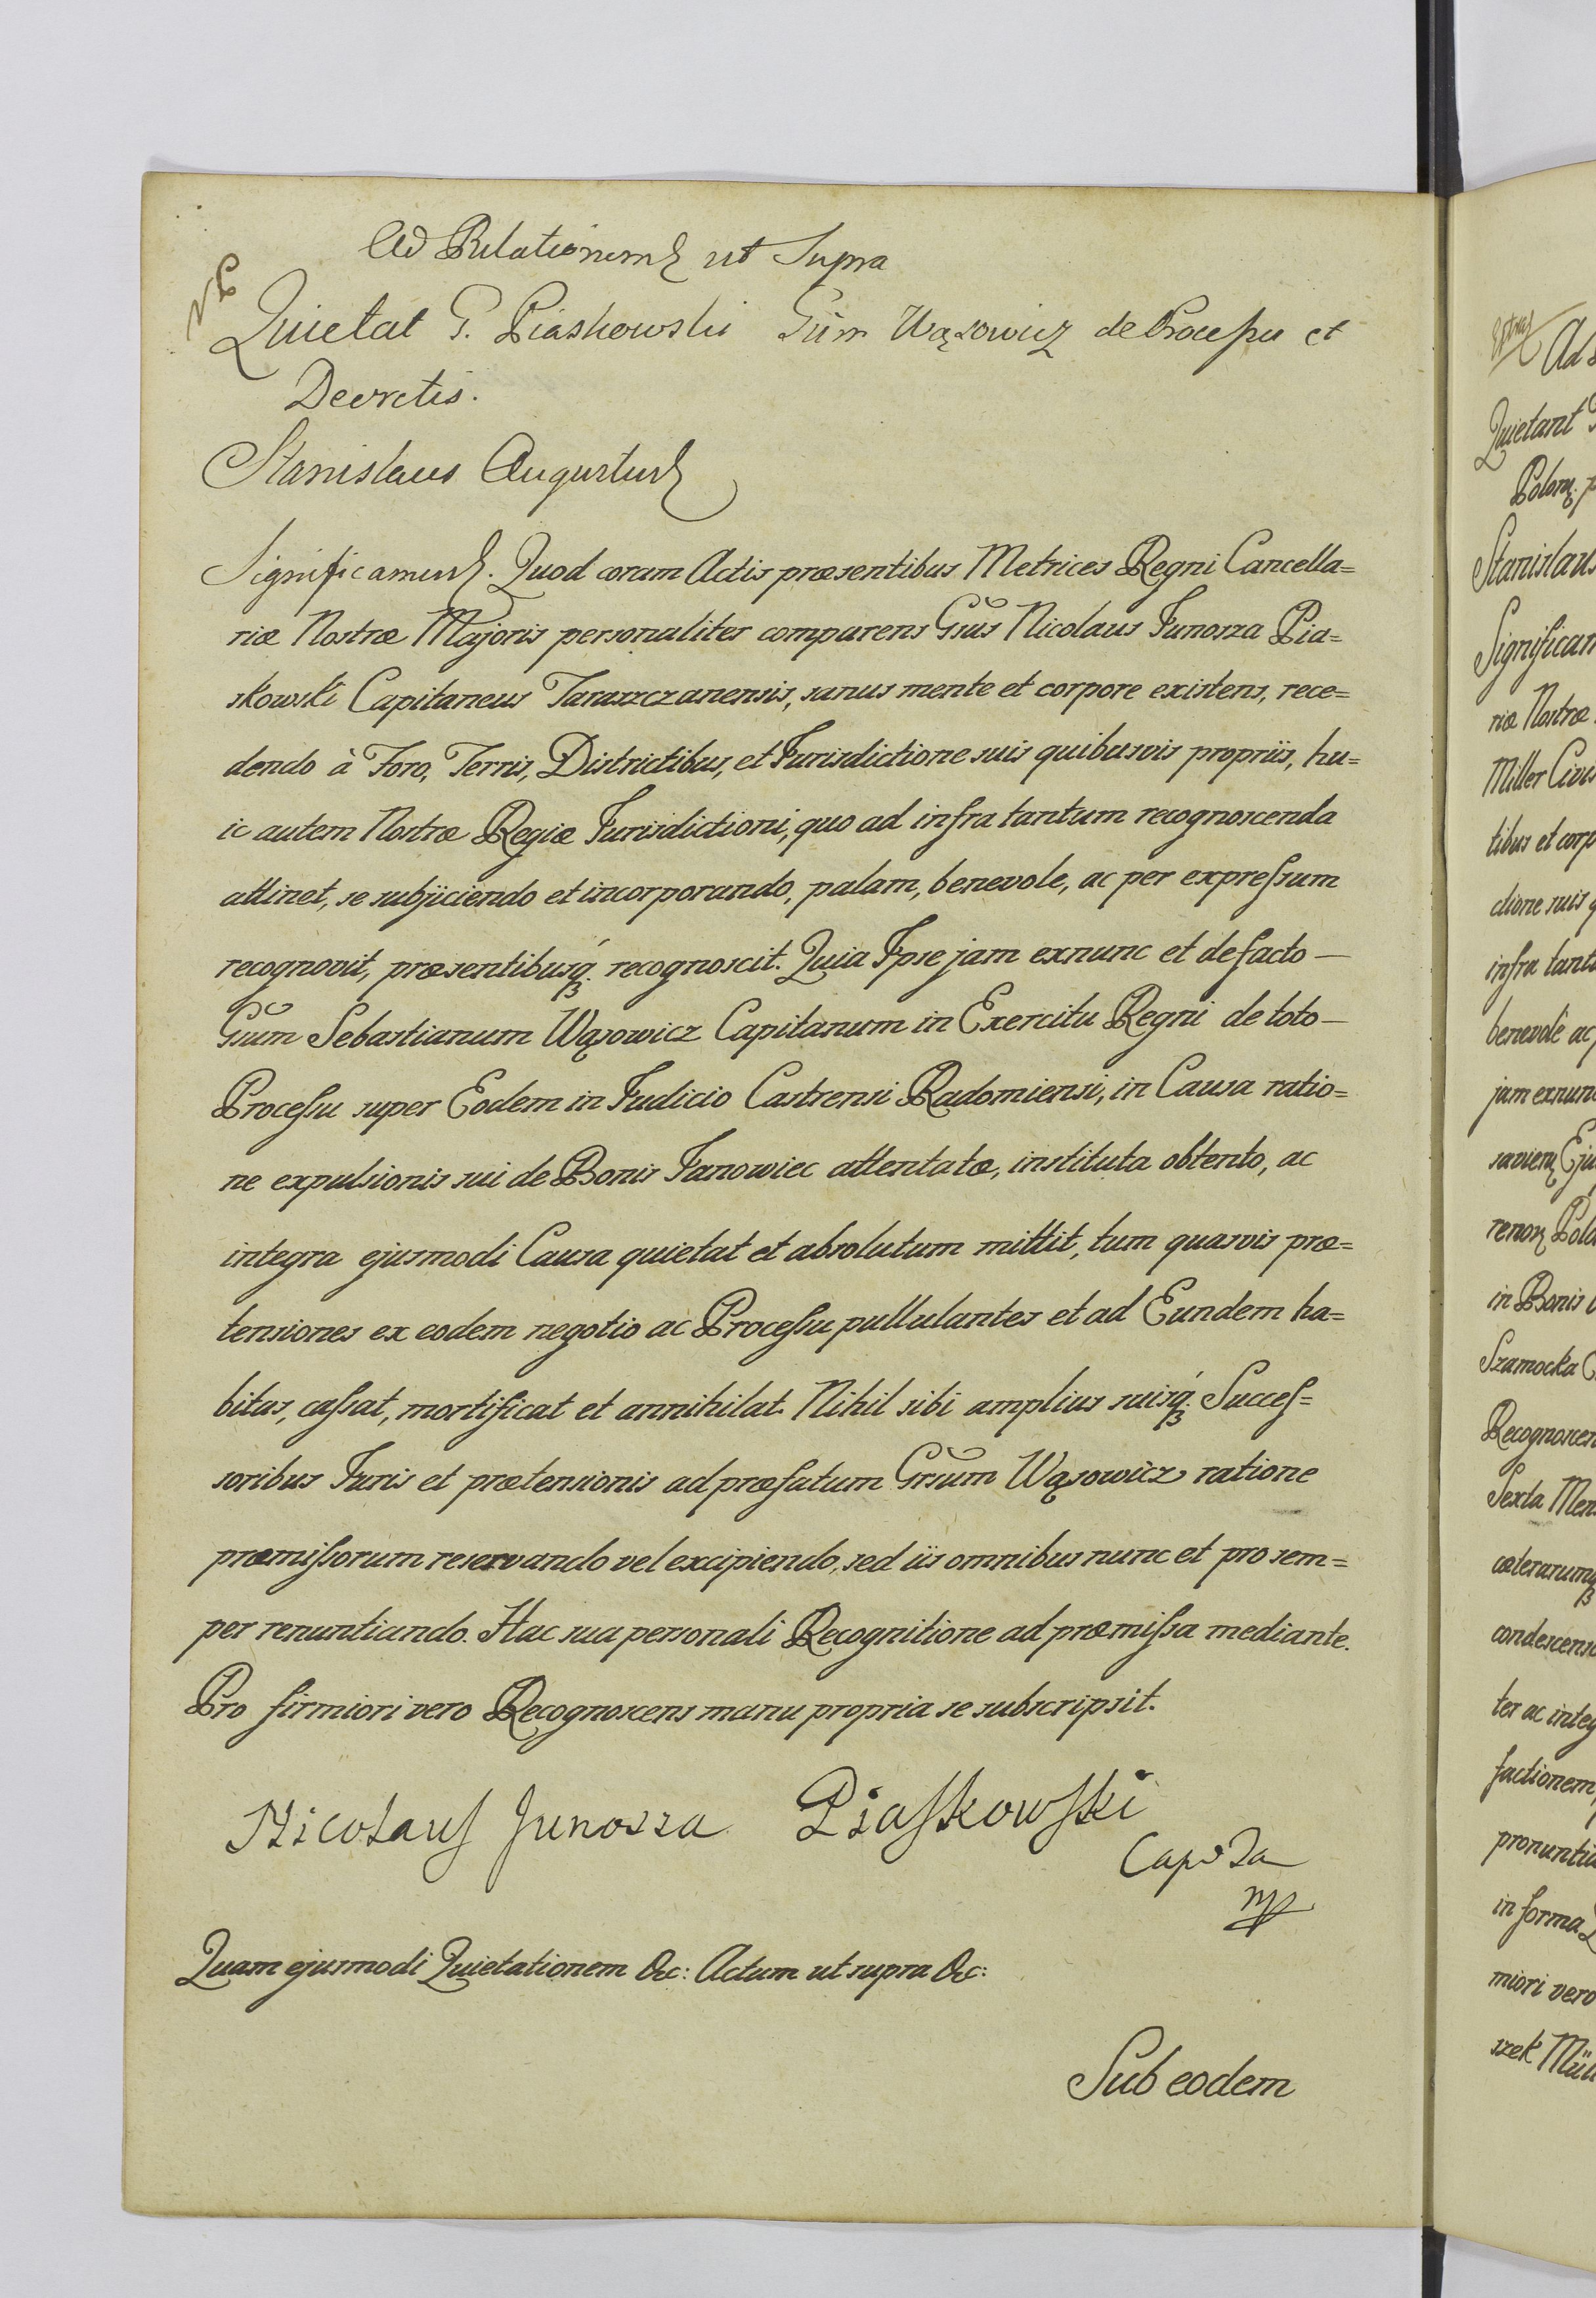 Ad Relationem ut Supra
Quietat G. Piaskowski Gum Wąsowicz de Processu et
Decretis.
Stanislaus Augustus
Significamus. Quod coram Actis præsentibus Metrices Regni Cancella=
riæ Nostræ Majoris personaliter comparens Gsus Nicolaus Junosza Pia=
skowski Capitaneus Taraszczanensis, sanus mente et corpore existens, rece=
dendo à Foro, Terris, Districtibus, et Jurisdictione suis quibusvis propriis, hu=
ic autem Nostræ Regiæ Jurisdictioni, quo ad infra tantum recognoscenda
attinet, se subjiciendo et incorporando, palam, benevole, ac per expressum
recognovit, præsentibusq́ꝫ recognoscit. Quia Ipse jam exnunc et defacto —
Gsum Sebastianum Wąsowicz Capitanum in Exercitu Regni de toto —
Processu super Eodem in Judicio Castrensi Radomiensi, in Causa ratio=
ne expulsionis sui de Bonis Janowiec attentatæ, instituta obtento, ac
integra ejusmodi Causa quietat et absolutum mittit, tum quasvis præ=
tensiones ex eodem negotio ac Processu pullulantes et ad Eundem ha=
bitas, cassat, mortificat et annihilat. Nihil sibi amplius suisq́ꝫ Succes=
soribus Juris et prætensionis ad præfatum Grsum Wąsowicz ratione
præmissorum reservando vel excipiendo, sed iis omnibus nunc et pro sem=
per renuntiando. Hac sua personali Recognitione ad præmissa mediante.
Pro firmiori vero Recognoscens manu propria se subscripsit.
Nicolaus Junosza Piaskowski
Cap Ta
mp
Quam ejusmodi Quietationem &c: Actum ut supra &c:
Sub eodem
Quietant
Polon
Stanislaus
Significam
riæ Nostræ
Miller Civis
tibus et corp
ctione suis q
infra tant
benevolè ac
jam exnunc
in Bonis
Szamocka
Recognoscen
Sexta Men
cæterarumqꝫ
condescens
ter ac integ
factionem,
pronuntia
in forma
miori vero
szek Mül